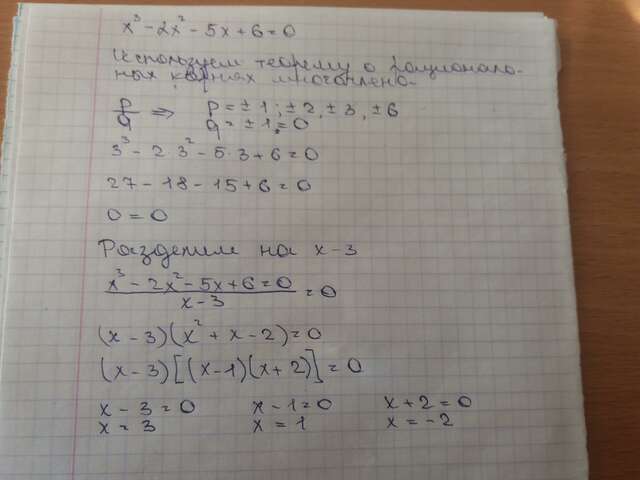 x³ - 2x² - 5x + 6 = 0
Используем теорему о рациональ-
ных корнях многочлена.
p/q ⇒ p = ±1; ±2, ±3, ±6
q = ±1 = 0
3³ - 2·3² - 5·3 + 6 = 0
27 - 18 - 15 + 6 = 0
0 = 0
Разделим на x-3
x³ - 2x² - 5x + 6 = 0 / x-3 = 0
(x-3)(x² + x - 2) = 0
(x-3)[(x-1)(x+2)] = 0
x - 3 = 0 x - 1 = 0 x + 2 = 0
x = 3 x = 1 x = -2